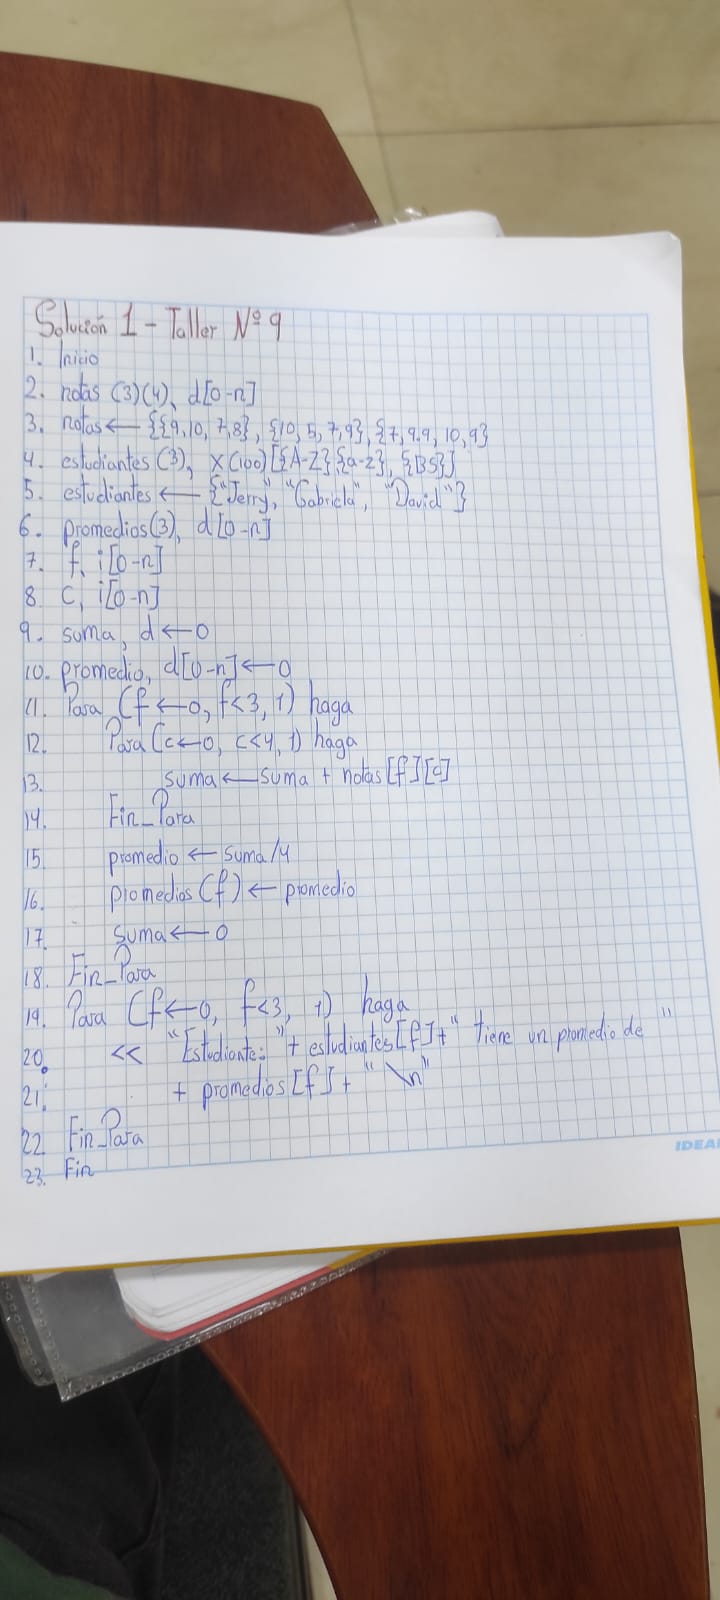 Solución 1 - Taller Nº 9
1. Inicio
2. notas (3)(4), d[0-n]
3. notas ← {{9,10,7,8}, {10,5,7,9}, {7,9.9,10,9}
4. estudiantes (3), x(100)[{A-Z}{a-z}, {BS}]
5. estudiantes ← {"Jerry", "Gabriela", "David"}
6. promedios(3), d[0-n]
7. f, i[0-n]
8. c, i[0-n]
9. suma, d ← 0
10. promedio, d[0-n] ← 0
11. Para (f ← 0, f<3, 1) haga
12. Para (c ← 0, c<4, 1) haga
13. suma ← suma + notas [f][c]
14. Fin_Para
15. promedio ← suma/4
16. promedios (f) ← promedio
17. suma ← 0
18. Fin_Para
19. Para (f ← 0, f<3, 1) haga
20. << "Estudiante: " + estudiantes[f] + " tiene un promedio de "
21. + promedios [f] + " \n"
22 Fin_Para
23. Fin
IDEAL